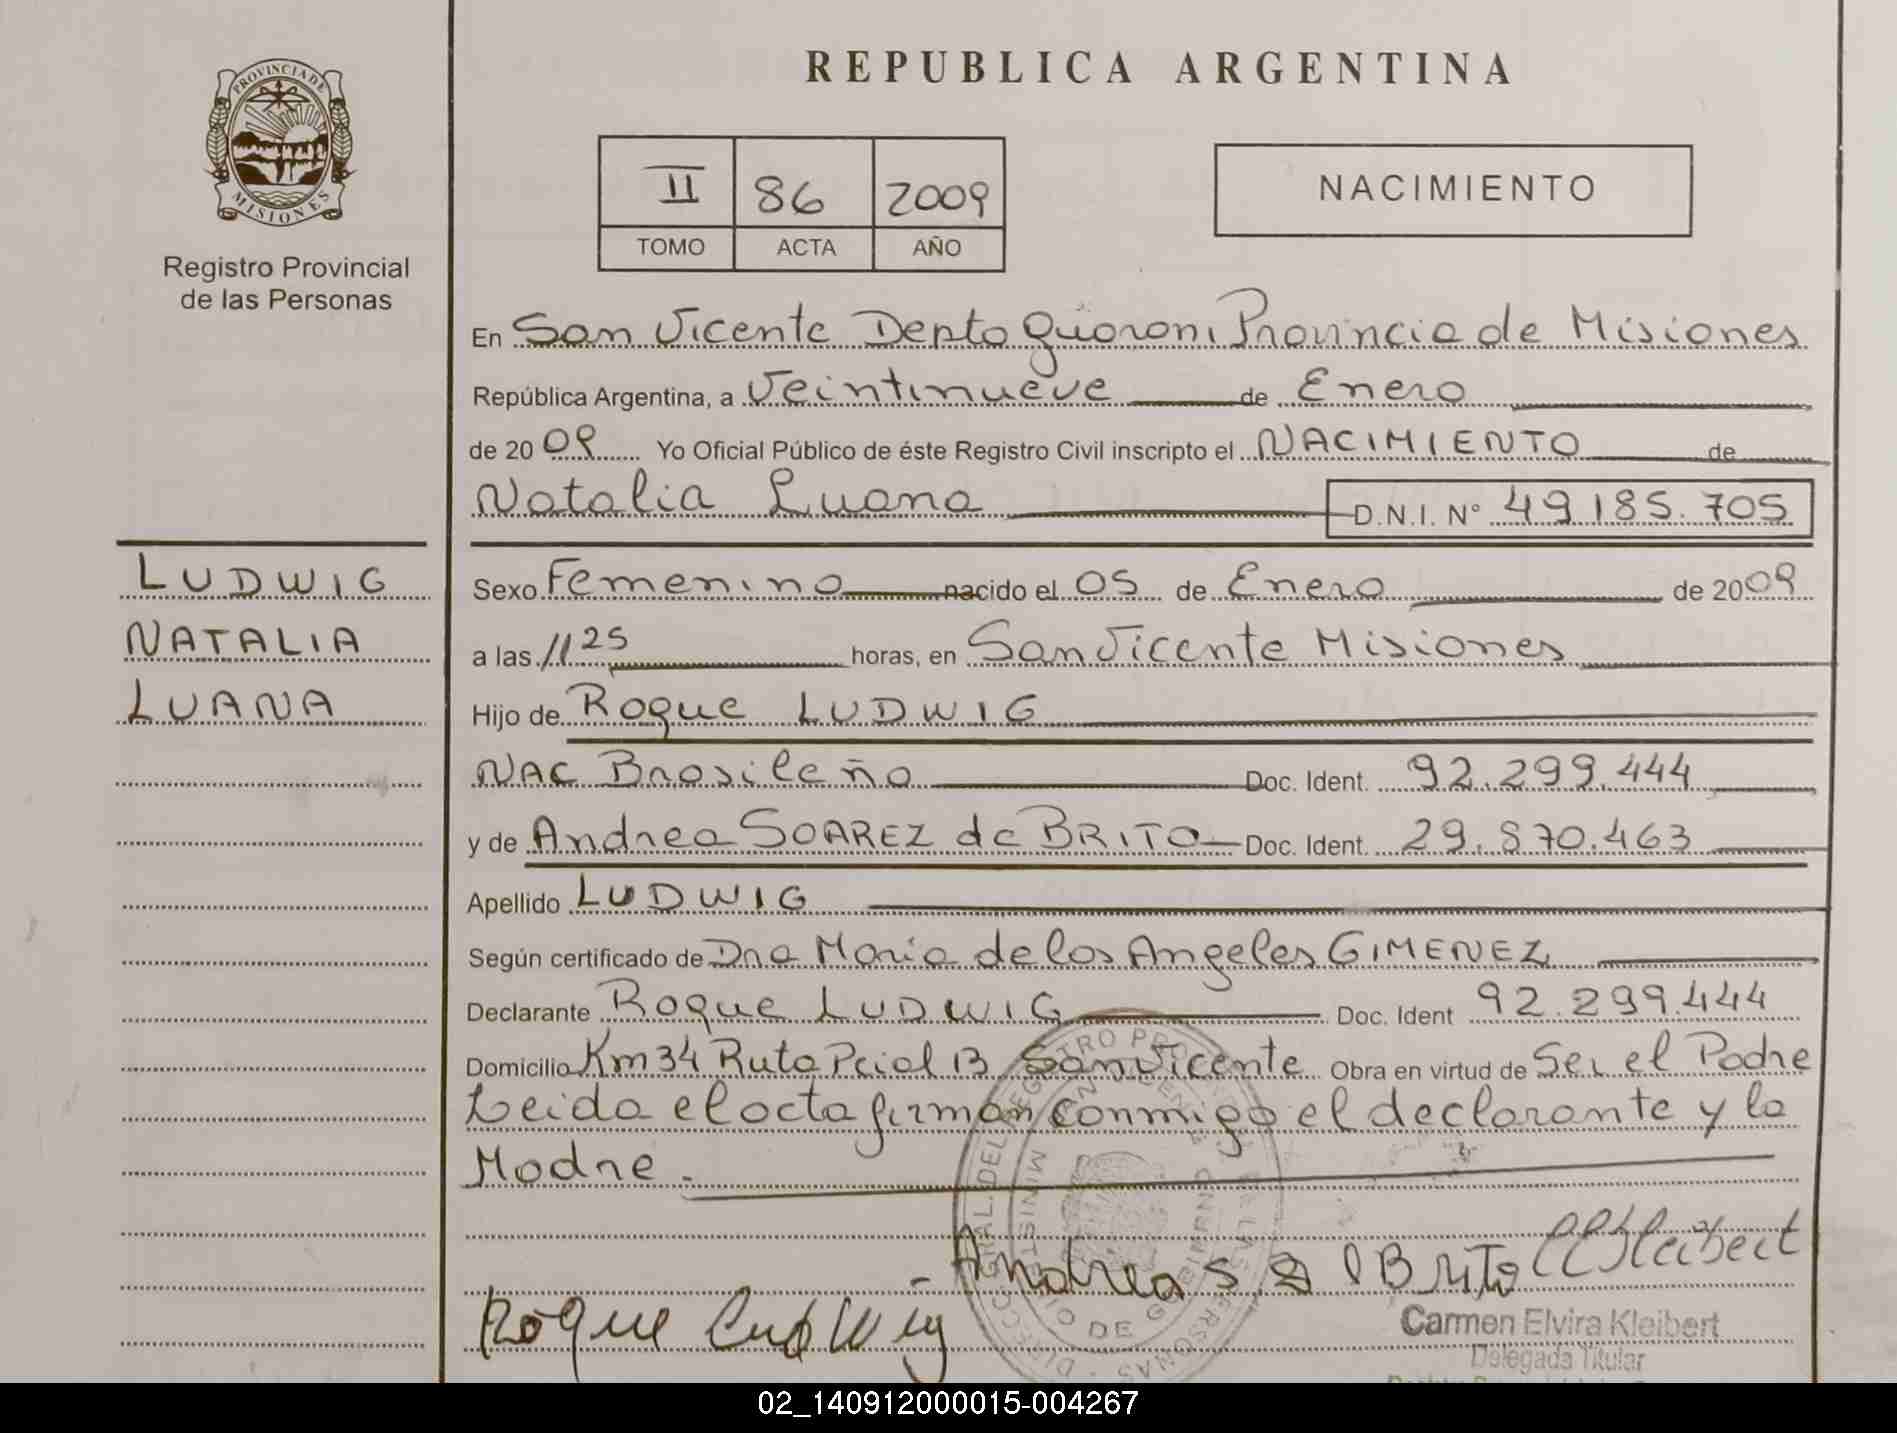 PROVINCIA DE
MISIONES
Registro Provincial
de las Personas
LUDWIG
NATALIA
LUANA
REPUBLICA ARGENTINA
II 86 2009
TOMO ACTA AÑO
NACIMIENTO
En San Vicente Depto Guarani Provincia de Misiones
República Argentina, a Veintinueve de Enero
de 2009 Yo Oficial Público de éste Registro Civil inscripto el NACIMIENTO de
Natalia Luana D.N.I. N° 49.185.705
Sexo Femenino nacido el 05 de Enero de 2009
a las 11 25 horas, en San Vicente Misiones
Hijo de Roque LUDWIG
NAC Brasileño Doc. Ident. 92.299.444
y de Andrea SOAREZ de BRITO Doc. Ident. 29.870.463
Apellido LUDWIG
Según certificado de Dra Maria de los Angeles GIMENEZ
Declarante Roque LUDWIG Doc. Ident 92.299.444
Domicilio Km 34 Ruta Pcial 13 San Vicente Obra en virtud de Ser el Padre
Leida el acta firman conmigo el declarante y la
Madre.
Andrea S. d Brito CEKleibert
Roque Ludwig
Carmen Elvira Kleibert
Delegada Titular
02_140912000015-004267